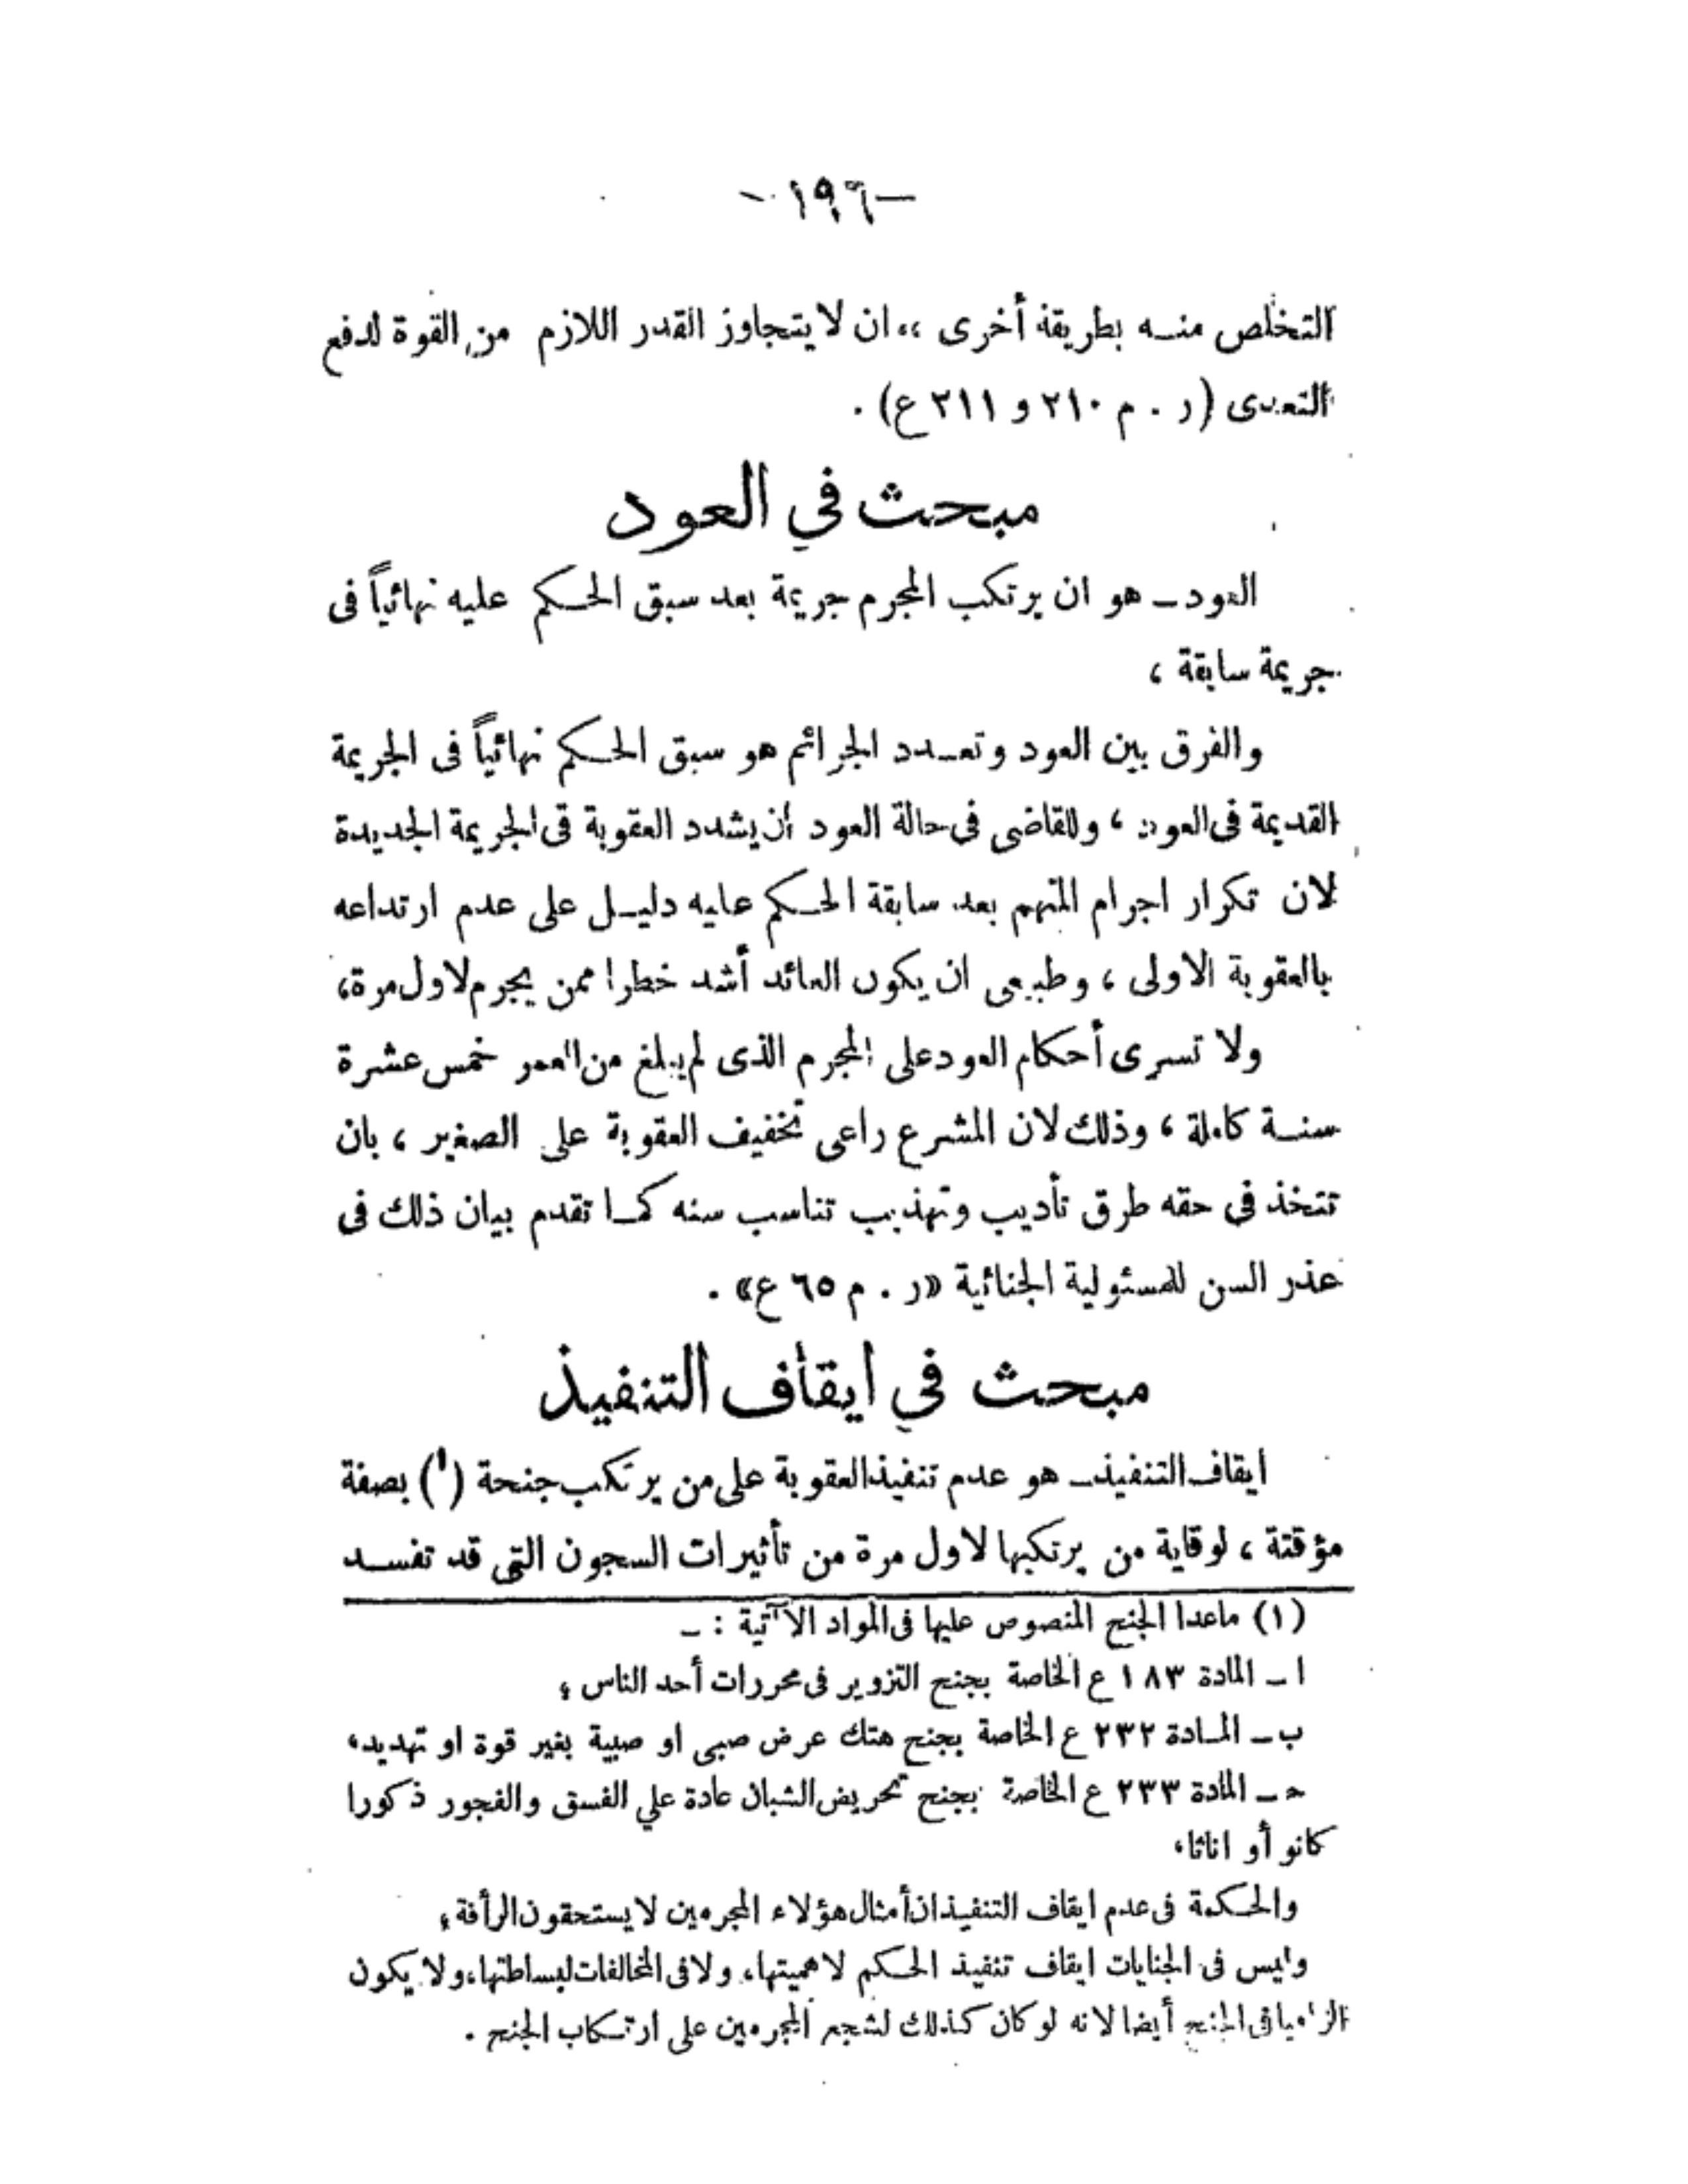 — ١٩٦ —
التخلص منه بطريقة أخرى ،، ان لا يتجاوز القدر اللازم من القوة لدفع
التعدى (ر . م ٢١٠ و ٢١١ ع) .
مبحث في العود
العود ـ هو ان يرتكب المجرم جريمة بعد سبق الحكم عليه نهائياً فى
جريمة سابقة ،
والفرق بين العود وتعدد الجرائم هو سبق الحكم نهائياً فى الجريمة
القديمة فى العود ، وللقاضى فى حالة العود أن يشدد العقوبة فى الجريمة الجديدة
لان تكرار اجرام المتهم بعد سابقة الحكم عليه دليل على عدم ارتداعه
بالعقوبة الاولى ، وطبيعى ان يكون العائد أشد خطرا ممن يجرم لاول مرة،
ولا تسرى أحكام العود على المجرم الذى لم يبلغ من العمر خمس عشرة
سنة كاملة ، وذلك لان المشرع راعى تخفيف العقوبة على الصغير ، بان
تتخذ فى حقه طرق تأديب وتهذيب تناسب سنه كما تقدم بيان ذلك فى
عذر السن للمسئولية الجنائية «ر . م ٦٥ ع» .
مبحث في ايقاف التنفيذ
ايقاف التنفيذ ـ هو عدم تنفيذ العقوبة على من يرتكب جنحة (١) بصفة
مؤقتة ، لوقاية من يرتكبها لاول مرة من تأثيرات السجون التى قد تفسد
(١) ماعدا الجنح المنصوص عليها فى المواد الآتية : ـ
ا ـ المادة ١٨٣ ع الخاصة بجنح التزوير فى محررات أحد الناس ،
ب ـ المادة ٢٣٢ ع الخاصة بجنح هتك عرض صبى او صبية بغير قوة او تهديد،
حـ ـ المادة ٢٣٣ ع الخاصة بجنح تحريض الشبان عادة علي الفسق والفجور ذكورا
كانو أو اناثا،
والحكمة فى عدم ايقاف التنفيذ ان أمثال هؤلاء المجرمين لا يستحقون الرأفة ،
وليس فى الجنايات ايقاف تنفيذ الحكم لاهميتها، ولا فى المخالفات لبساطتها، ولا يكون
الزاميا فى الجنح أيضا لانه لو كان كذلك لشجع المجرمين على ارتكاب الجنح .